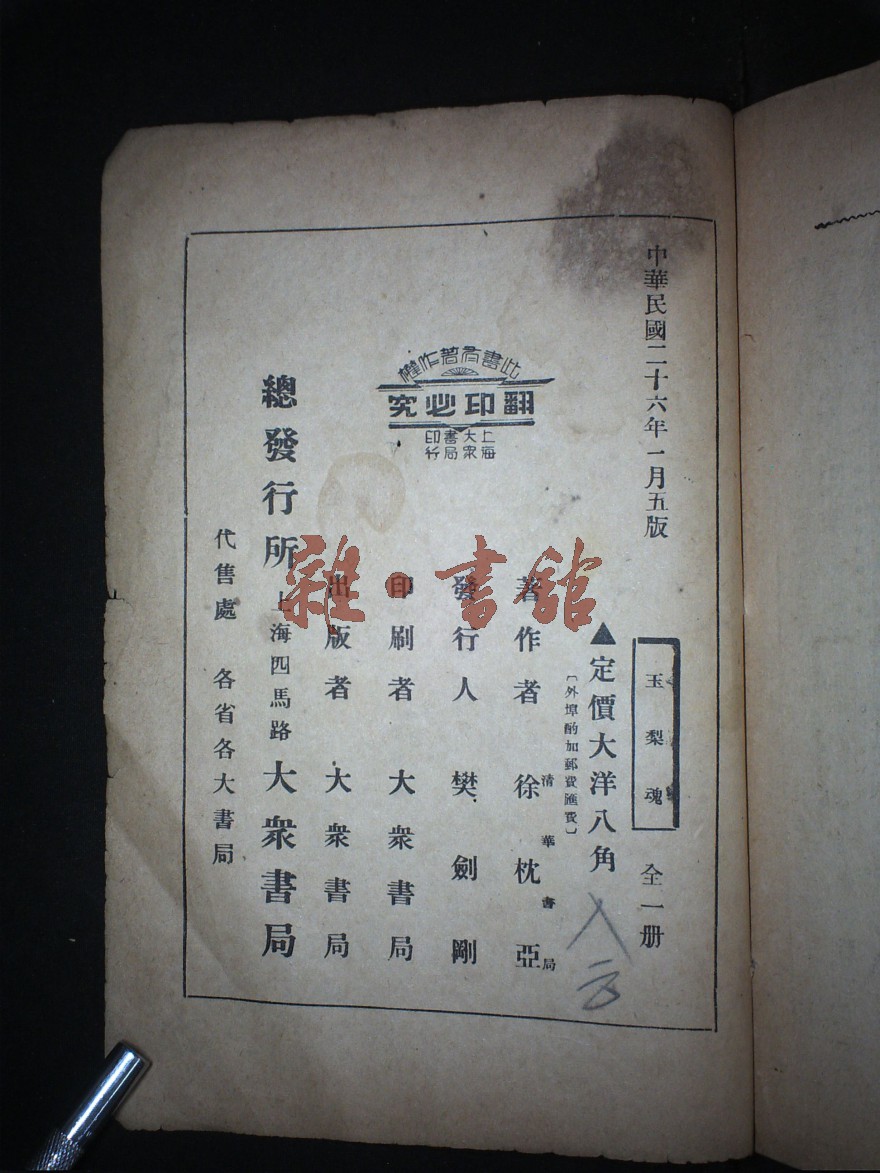 中華民國二十六年一月五版
玉梨魂 全一册
▲定價大洋八角
〔外埠酌加郵費匯費〕
著作者 徐枕亞
清華書局
發行人 樊劍剛
印刷者 大衆書局
出版者 大衆書局
總發行所 上海四馬路 大衆書局
代售處 各省各大書局
此書有著作權
翻印必究
上海
大衆
書局
印行
雜·書館